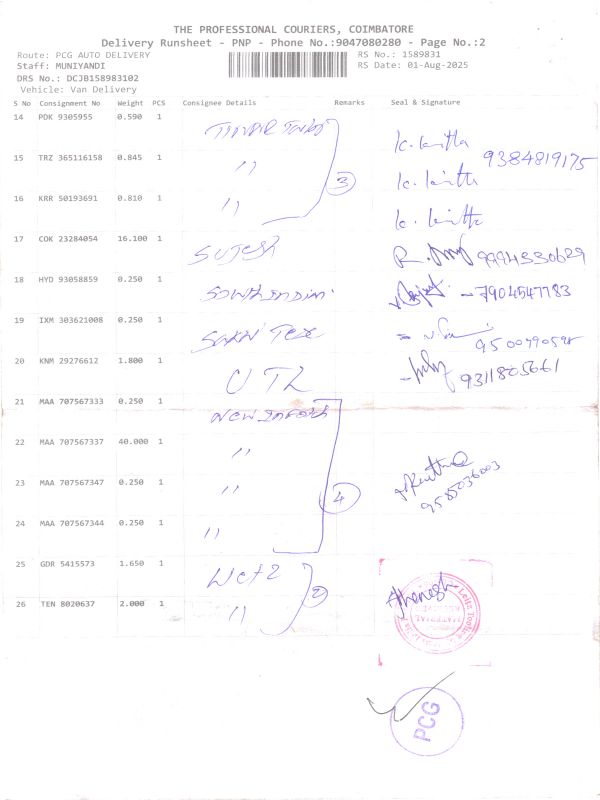 THE PROFESSIONAL COURIERS, COIMBATORE
Delivery Runsheet - PNP - Phone No.:9047080280 - Page No.:2
Route: PCG AUTO DELIVERY
RS No.: 1589831
Staff: MUNIYANDI
RS Date: 01-Aug-2025
DRS No.: DCJB158983102
Vehicle: Van Delivery
S No Consignment No Weight PCS Consignee Details Remarks Seal & Signature
14 PDK 9305955 0.590 1
15 TRZ 365116158 0.845 1 " 9384819175
16 KRR 50193691 0.810 1 " 3
17 COK 23284054 16.100 1 SUJESH 9994330629
18 HYD 93058859 0.250 1 -7904547783
19 IXM 303621008 0.250 1 SAKNI TEX
20 KNM 29276612 1.800 1 UTL 9311825661
21 MAA 707567333 0.250 1
22 MAA 707567337 40.000 1 "
23 MAA 707567347 0.250 1 " 4 9585036003
24 MAA 707567344 0.250 1 "
25 GDR 5415573 1.650 1 2
26 TEN 8020637 2.000 1 "
PCG